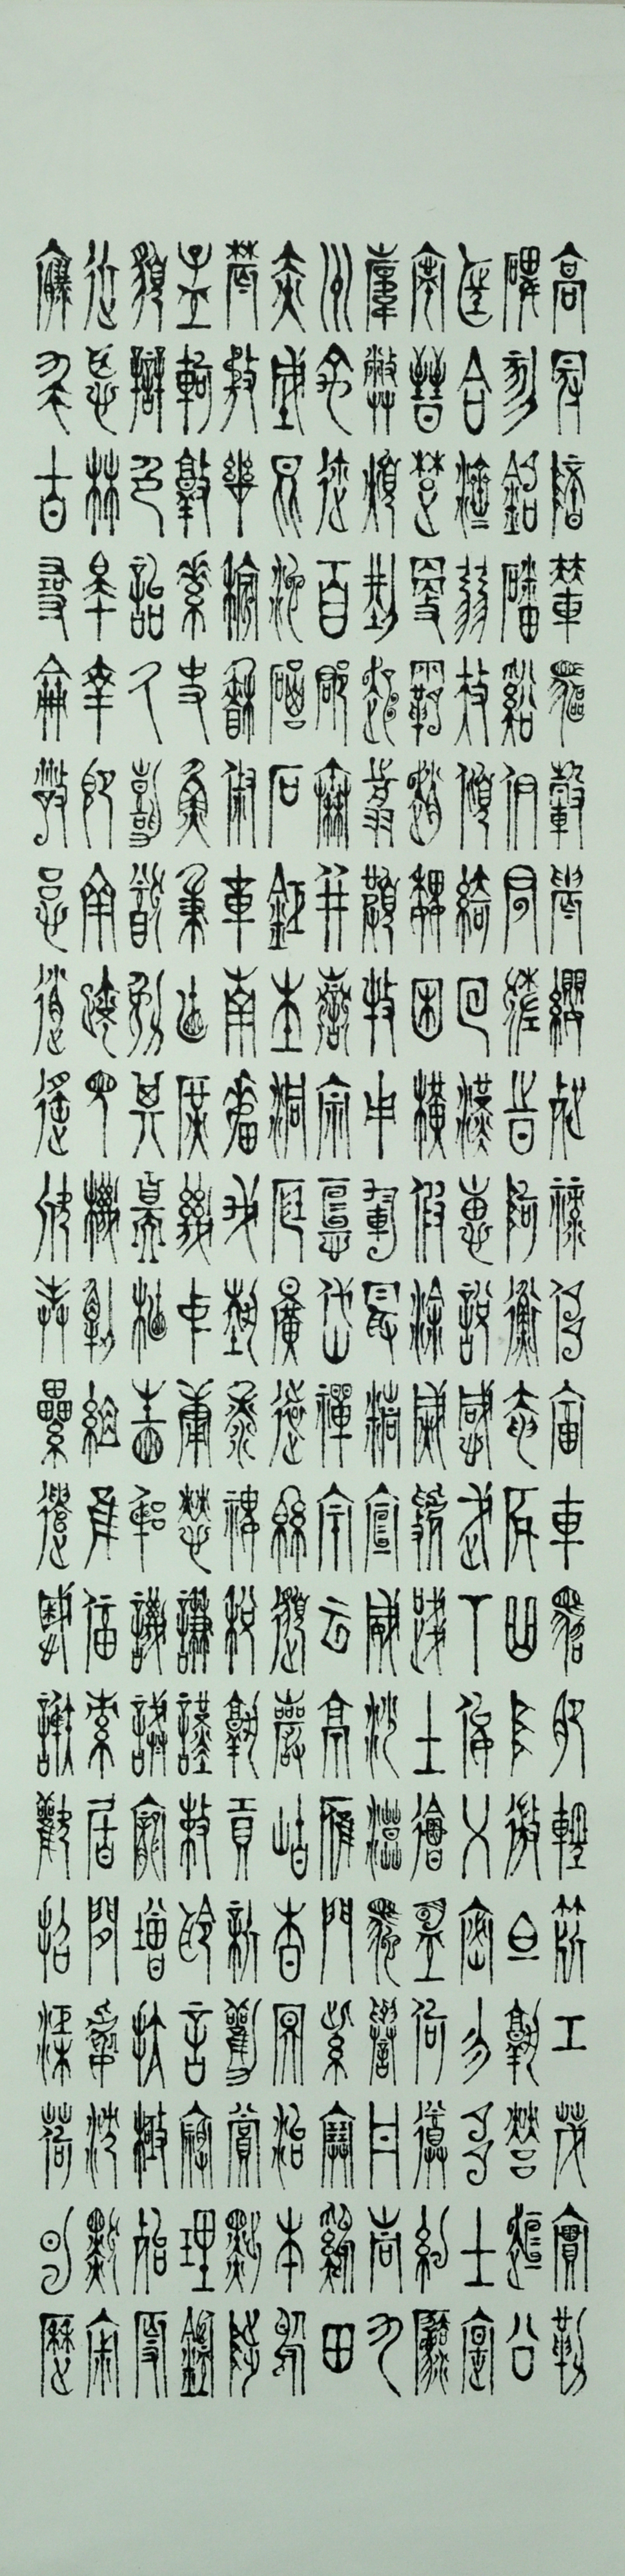 高冠陪輦驅轂振纓世祿侈富車駕肥輕策功茂實勒
碑刻銘磻溪伊尹佐時阿衡奄宅曲阜微旦孰營桓公
匡合濟弱扶傾綺回漢惠說感武丁俊乂密勿多士寔
寧晉楚更霸趙魏困橫假途滅虢踐土會盟何遵約法
韓弊煩刑起翦頗牧用軍最精宣威沙漠馳譽丹青九
州禹跡百郡秦并嶽宗恆岱禪主云亭雁門紫塞雞田
赤城昆池碣石鉅野洞庭曠遠緜邈巖岫杳冥治本於
農務茲稼穡俶載南畝我藝黍稷稅熟貢新勸賞黜陟
孟軻敦素史魚秉直庶幾中庸勞謙謹敕聆音察理鑑
貌辨色貽厥嘉猷勉其祗植省躬譏誡寵增抗極殆辱
近恥林皋幸即兩疏見機解組誰逼索居閒處沉默寂
寥求古尋論散慮逍遙欣奏累遣慼謝歡招渠荷的歷